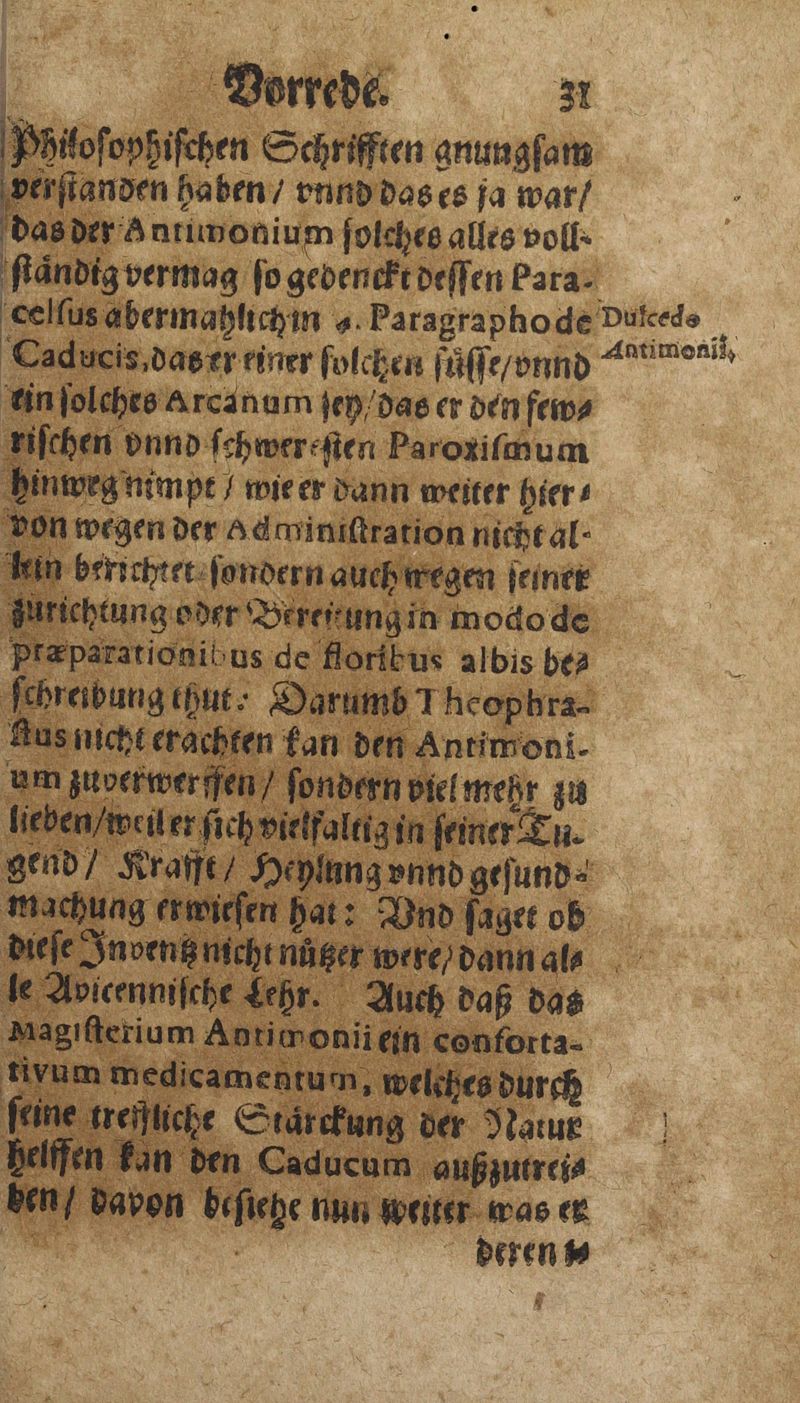 Vorrede. 31
Philosophischen Schrifften gnungsam
verstanden haben / vnnd das es ja war /
das der Antimonium solches alles voll-
ständig vermag so gedenckt dessen Para-
celsus abermahlich in 4. Paragrapho de
Dulcedo
Caducis, das er einer solchen süsse / vnnd
Antimonii,
ein solches Arcanum sey / das er den sew-
rischen vnnd schweresten Paroxismum
hinweg nimpt / wie er dann weiter hier-
von wegen der Administration nicht al-
lein berichtet sondern auch wegen seiner
zurichtung oder Bereitung in modo de
præparationibus de floribus albis be-
schreibung thut: Darumb Theophra-
stus nicht erachten kan den Antimoni-
um zuverwerffen / sondern viel mehr zu
lieben / weil er sich vielfaltig in seiner Tu-
gend / Krafft / Heylung vnnd gesund-
machung erwiesen hat: Vnd saget ob
diese Invent nicht nützer were / dann al-
le Avicennische Lehr. Auch daß das
Magisterium Antimonii ein conforta-
tivum medicamentum, welches durch
seine treffliche Stärckung der Natur
helffen kan den Caducum außzutrei-
ben / davon besiehe nun weiter was er
deren